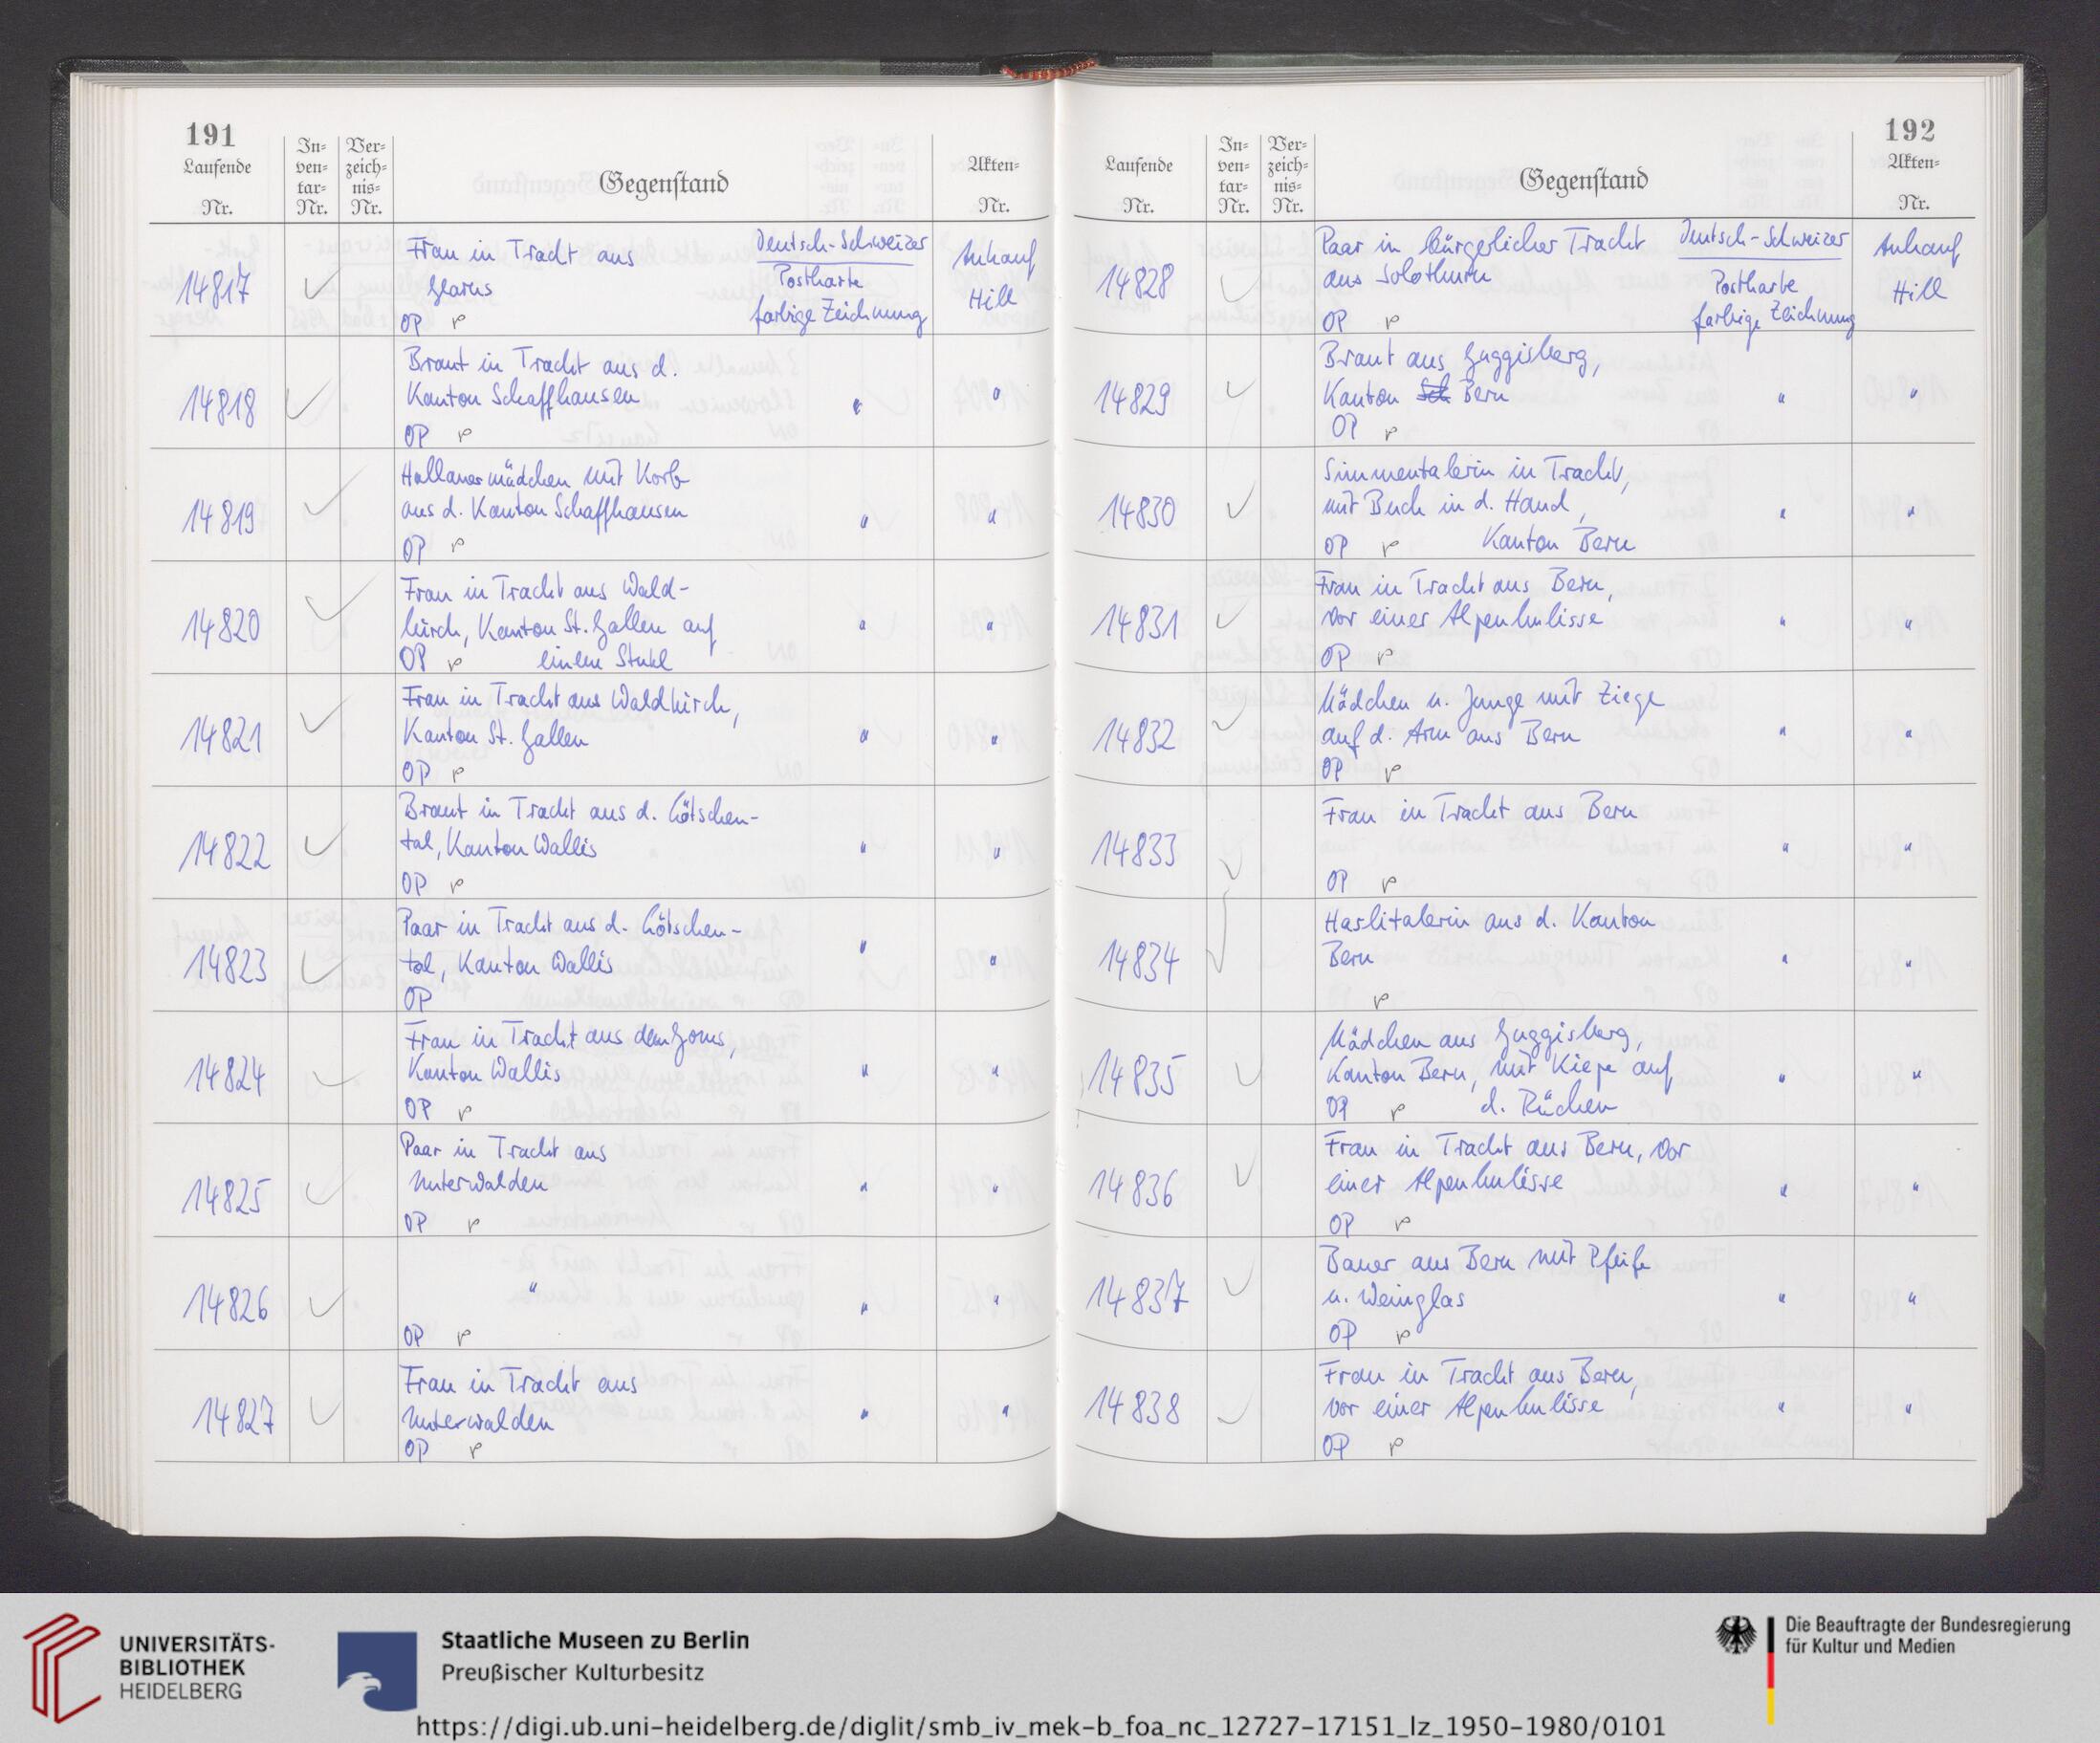 191
Laufende Nr.
In-ven-tar-Nr.
Ver-zeich-nis-Nr.
Gegenstand
Akten-Nr.
14817 Frau in Tracht aus Deutsch-Schweizer Ankauf
Glarus Postkarte Hill
OP r farbige Zeichnung
14818 Braut in Tracht aus d.
Kanton Schaffhausen " "
OP r
14819 Hallauermädchen mit Korb
aus d. Kanton Schaffhausen " "
OP r
14820 Frau in Tracht aus Wald-
kirch, Kanton St. Gallen auf " "
OP r einem Stuhl
14821 Frau in Tracht aus Waldkirch,
Kanton St. Gallen " "
OP r
14822 Braut in Tracht aus d. Lötschen-
tal, Kanton Wallis " "
OP r
14823 Paar in Tracht aus d. Lötschen-
tal, Kanton Wallis " "
OP
14824 Frau in Tracht aus dem Goms,
Kanton Wallis " "
OP r
14825 Paar in Tracht aus
Unterwalden " "
OP r
14826 " " "
OP r
14827 Frau in Tracht aus
Unterwalden " "
OP r
192
Laufende Nr.
In-ven-tar-Nr.
Ver-zeich-nis-Nr.
Gegenstand
Akten-Nr.
14828 Paar in bürgerlicher Tracht Deutsch-Schweizer Ankauf
aus Solothurn Postkarte Hill
OP r farbige Zeichnung
14829 Braut aus Guggisberg,
Kanton Sch Bern " "
OP r
14830 Simmentalerin in Tracht,
mit Buch in d. Hand, " "
OP r Kanton Bern
14831 Frau in Tracht aus Bern,
vor einer Alpenkulisse " "
OP r
14832 Mädchen u. Junge mit Ziege
auf d. Arm aus Bern " "
OP r
14833 Frau in Tracht aus Bern
" "
OP r
14834 Haslitalerin aus d. Kanton
Bern " "
r
14835 Mädchen aus Guggisberg,
Kanton Bern, mit Kiepe auf " "
OP r d. Rücken
14836 Frau in Tracht aus Bern, vor
einer Alpenkulisse " "
OP r
14837 Bauer aus Bern mit Pfeife
u. Weinglas " "
OP r
14838 Frau in Tracht aus Bern,
vor einer Alpenkulisse " "
OP r
UNIVERSITÄTS-
BIBLIOTHEK
HEIDELBERG
Staatliche Museen zu Berlin
Preußischer Kulturbesitz
Die Beauftragte der Bundesregierung
für Kultur und Medien
https://digi.ub.uni-heidelberg.de/diglit/smb_iv_mek-b_foa_nc_12727-17151_lz_1950-1980/0101